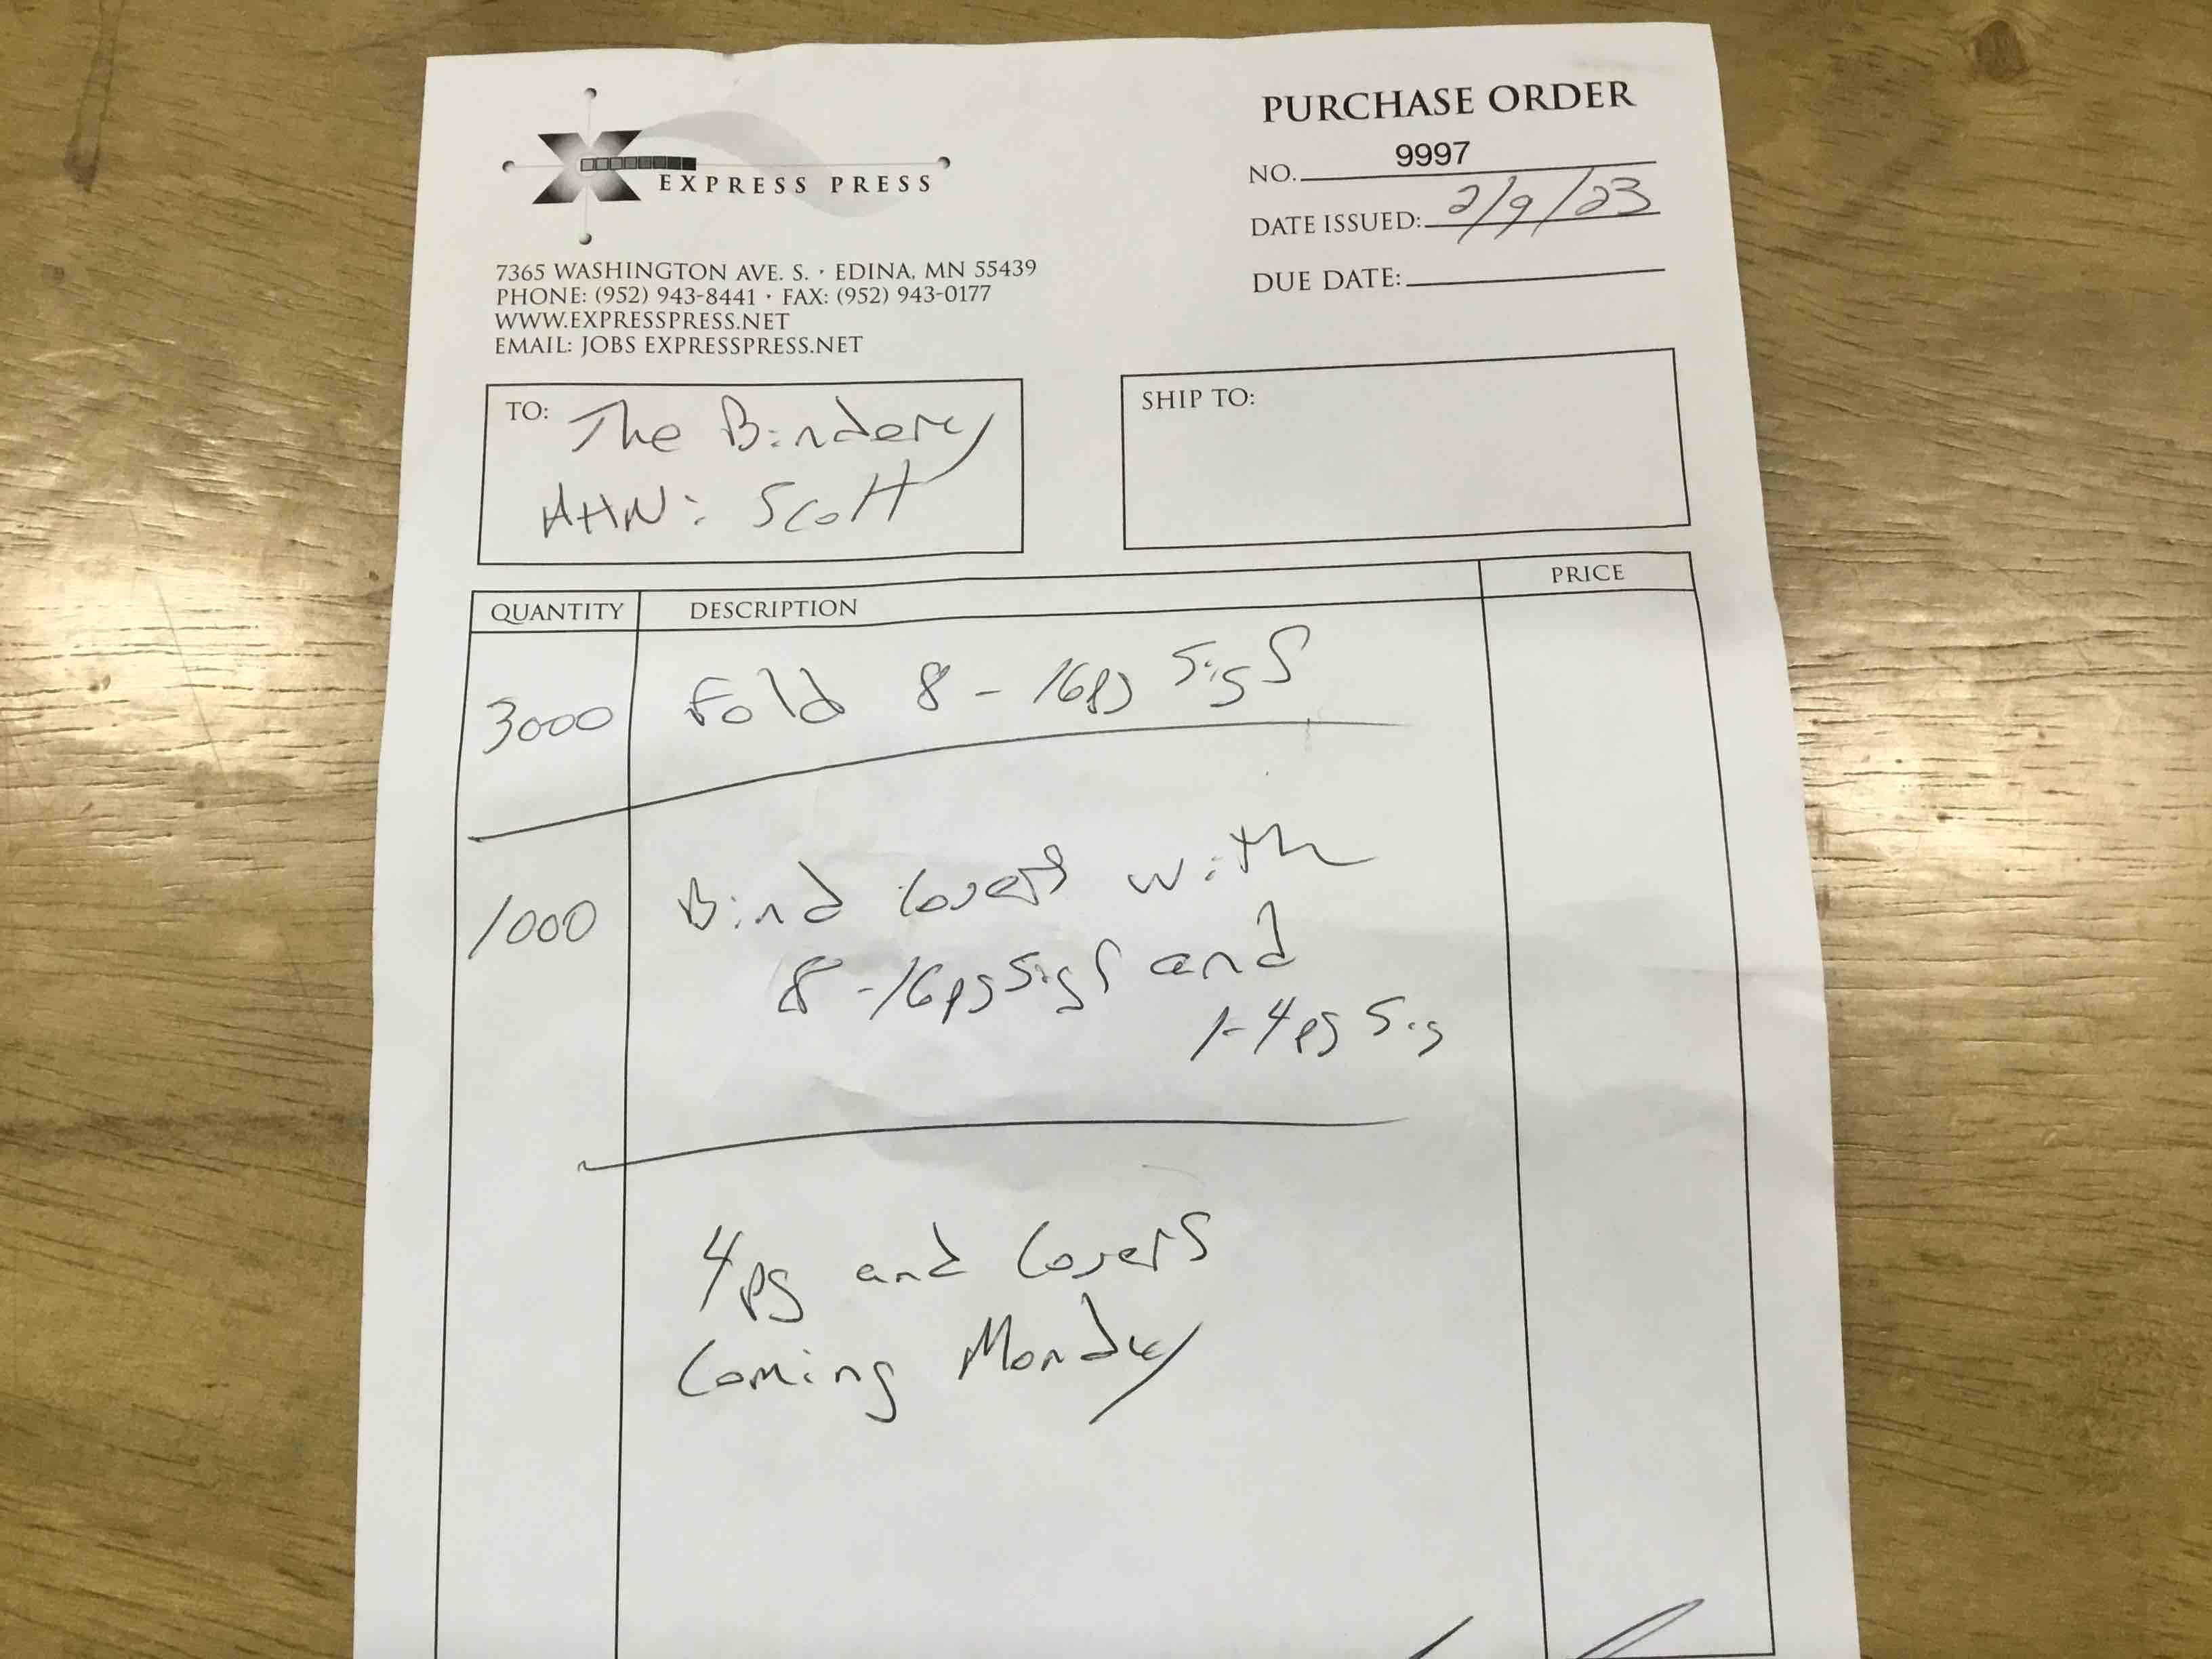 EXPRESS PRESS
7365 WASHINGTON AVE. S. · EDINA, MN 55439
PHONE: (952) 943-8441 · FAX: (952) 943-0177
WWW.EXPRESSPRESS.NET
EMAIL: JOBS EXPRESSPRESS.NET
PURCHASE ORDER
NO. 9997
DATE ISSUED: 2/9/23
DUE DATE:
TO: The Bindery
Attn: Scott
SHIP TO:
QUANTITY DESCRIPTION PRICE
3000 Fold 8 - 16pg sigs
1000 Bind Covers with
8-16pg sigs and
1-4pg sig
4pg and Covers
Coming Monday